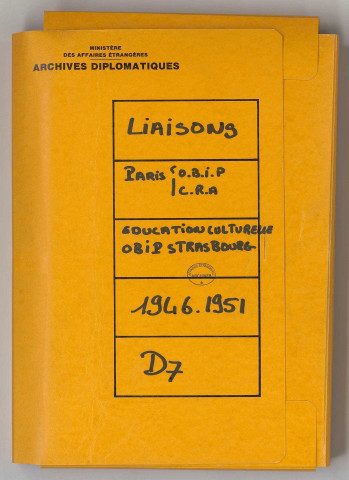 MINISTÈRE
DES AFFAIRES ÉTRANGÈRES
ARCHIVES DIPLOMATIQUES
LIAISONS
PARIS { O.B.i.P
C.R.A
EDUCATION CULTURELLE
OBiP STRASBOURG
1946.1951
D7